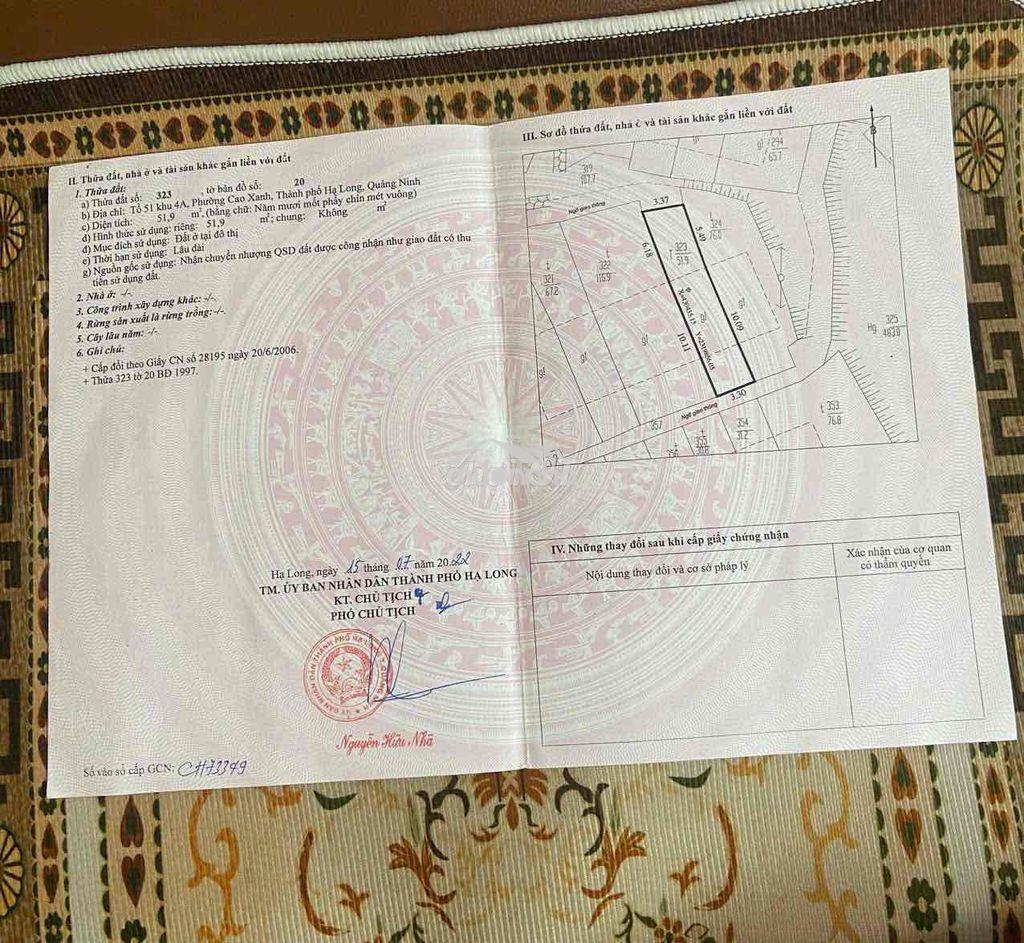 II. Thửa đất, nhà ở và tài sản khác gắn liền với đất
1. Thửa đất:
a) Thửa đất số: 323 , tờ bản đồ số: 20
b) Địa chỉ: Tổ 51 khu 4A, Phường Cao Xanh, Thành phố Hạ Long, Quảng Ninh
c) Diện tích: 51,9 m², (bằng chữ: Năm mươi mốt phẩy chín mét vuông)
d) Hình thức sử dụng: riêng: 51,9 m²; chung: Không m²
đ) Mục đích sử dụng: Đất ở tại đô thị
e) Thời hạn sử dụng: Lâu dài
g) Nguồn gốc sử dụng: Nhận chuyển nhượng QSD đất được công nhận như giao đất có thu
tiền sử dụng đất.
2. Nhà ở: -/-.
3. Công trình xây dựng khác: -/-.
4. Rừng sản xuất là rừng trồng:-/-.
5. Cây lâu năm: -/-
6. Ghi chú:
+ Cấp đổi theo Giấy CN số 28195 ngày 20/6/2006.
+ Thửa 323 tờ 20 BĐ 1997.
Hạ Long, ngày 15 tháng 07 năm 2022
TM. ỦY BAN NHÂN DÂN THÀNH PHỐ HẠ LONG
KT. CHỦ TỊCH
PHÓ CHỦ TỊCH
Nguyễn Hữu Nhã
Số vào sổ cấp GCN: CH73349
III. Sơ đồ thửa đất, nhà ở và tài sản khác gắn liền với đất
B
319
107.7
gl 294
65.7
Ngõ giao thông
3.37
t 324
76.0
5.40
6.18
t 323
51.9
t 322
116.9
t 321
67.2
gl
gl
gl
gl
gl
10.09
10.11
Hg 325
483.8
3.30
Ngõ giao thông
t 353
76.8
357
354
31.2
355
30.6
356
IV. Những thay đổi sau khi cấp giấy chứng nhận
Nội dung thay đổi và cơ sở pháp lý
Xác nhận của cơ quan
có thẩm quyền